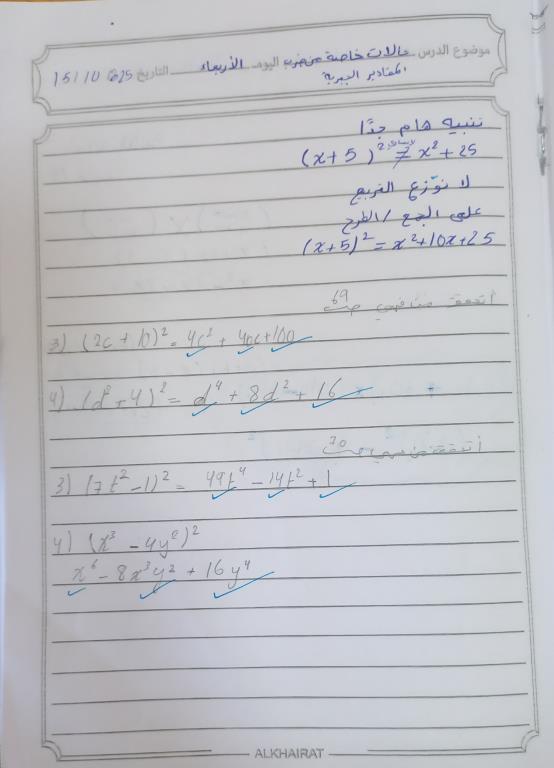 موضوع الدرس حالات خاصة من ضرب اليوم الأربعاء التاريخ 15/10/2025
المقادير الجبرية
تنبيه هام جدًا
(x+5)² ≠ x²+25
لا نوّزع التربيع
على الجمع / الطرح
(x+5)² = x²+10x+25
أتحقق من فهمي ص 69
3) (2c+10)² = 4c² + 40c+100
4) (d²+4)² = d⁴ + 8d² + 16
أتحقق من فهمي ص 70
3) (7t²-1)² = 49t⁴ - 14t² + 1
4) (x³ - 4y²)²
x⁶ - 8x³y² + 16y⁴
ALKHAIRAT